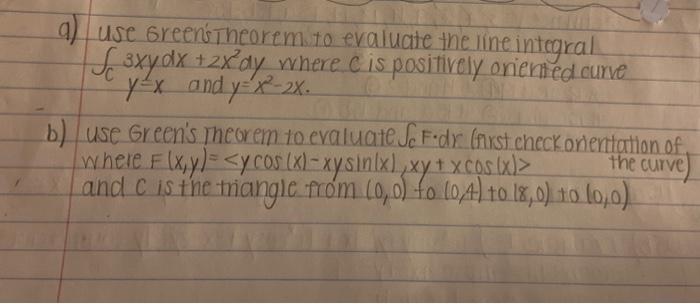 a) use Green's Theorem to evaluate the line integral
∫c 3xydx + 2x²dy where c is positively oriented curve
y=x and y=x²-2x.
b) use Green's Theorem to evaluate ∫c F·dr (first check orientation of
where F(x,y)= <ycos(x)-xysin(x), xy+xcos(x)> the curve)
and C is the triangle from (0,0) to (0,4) to (8,0) to (0,0)